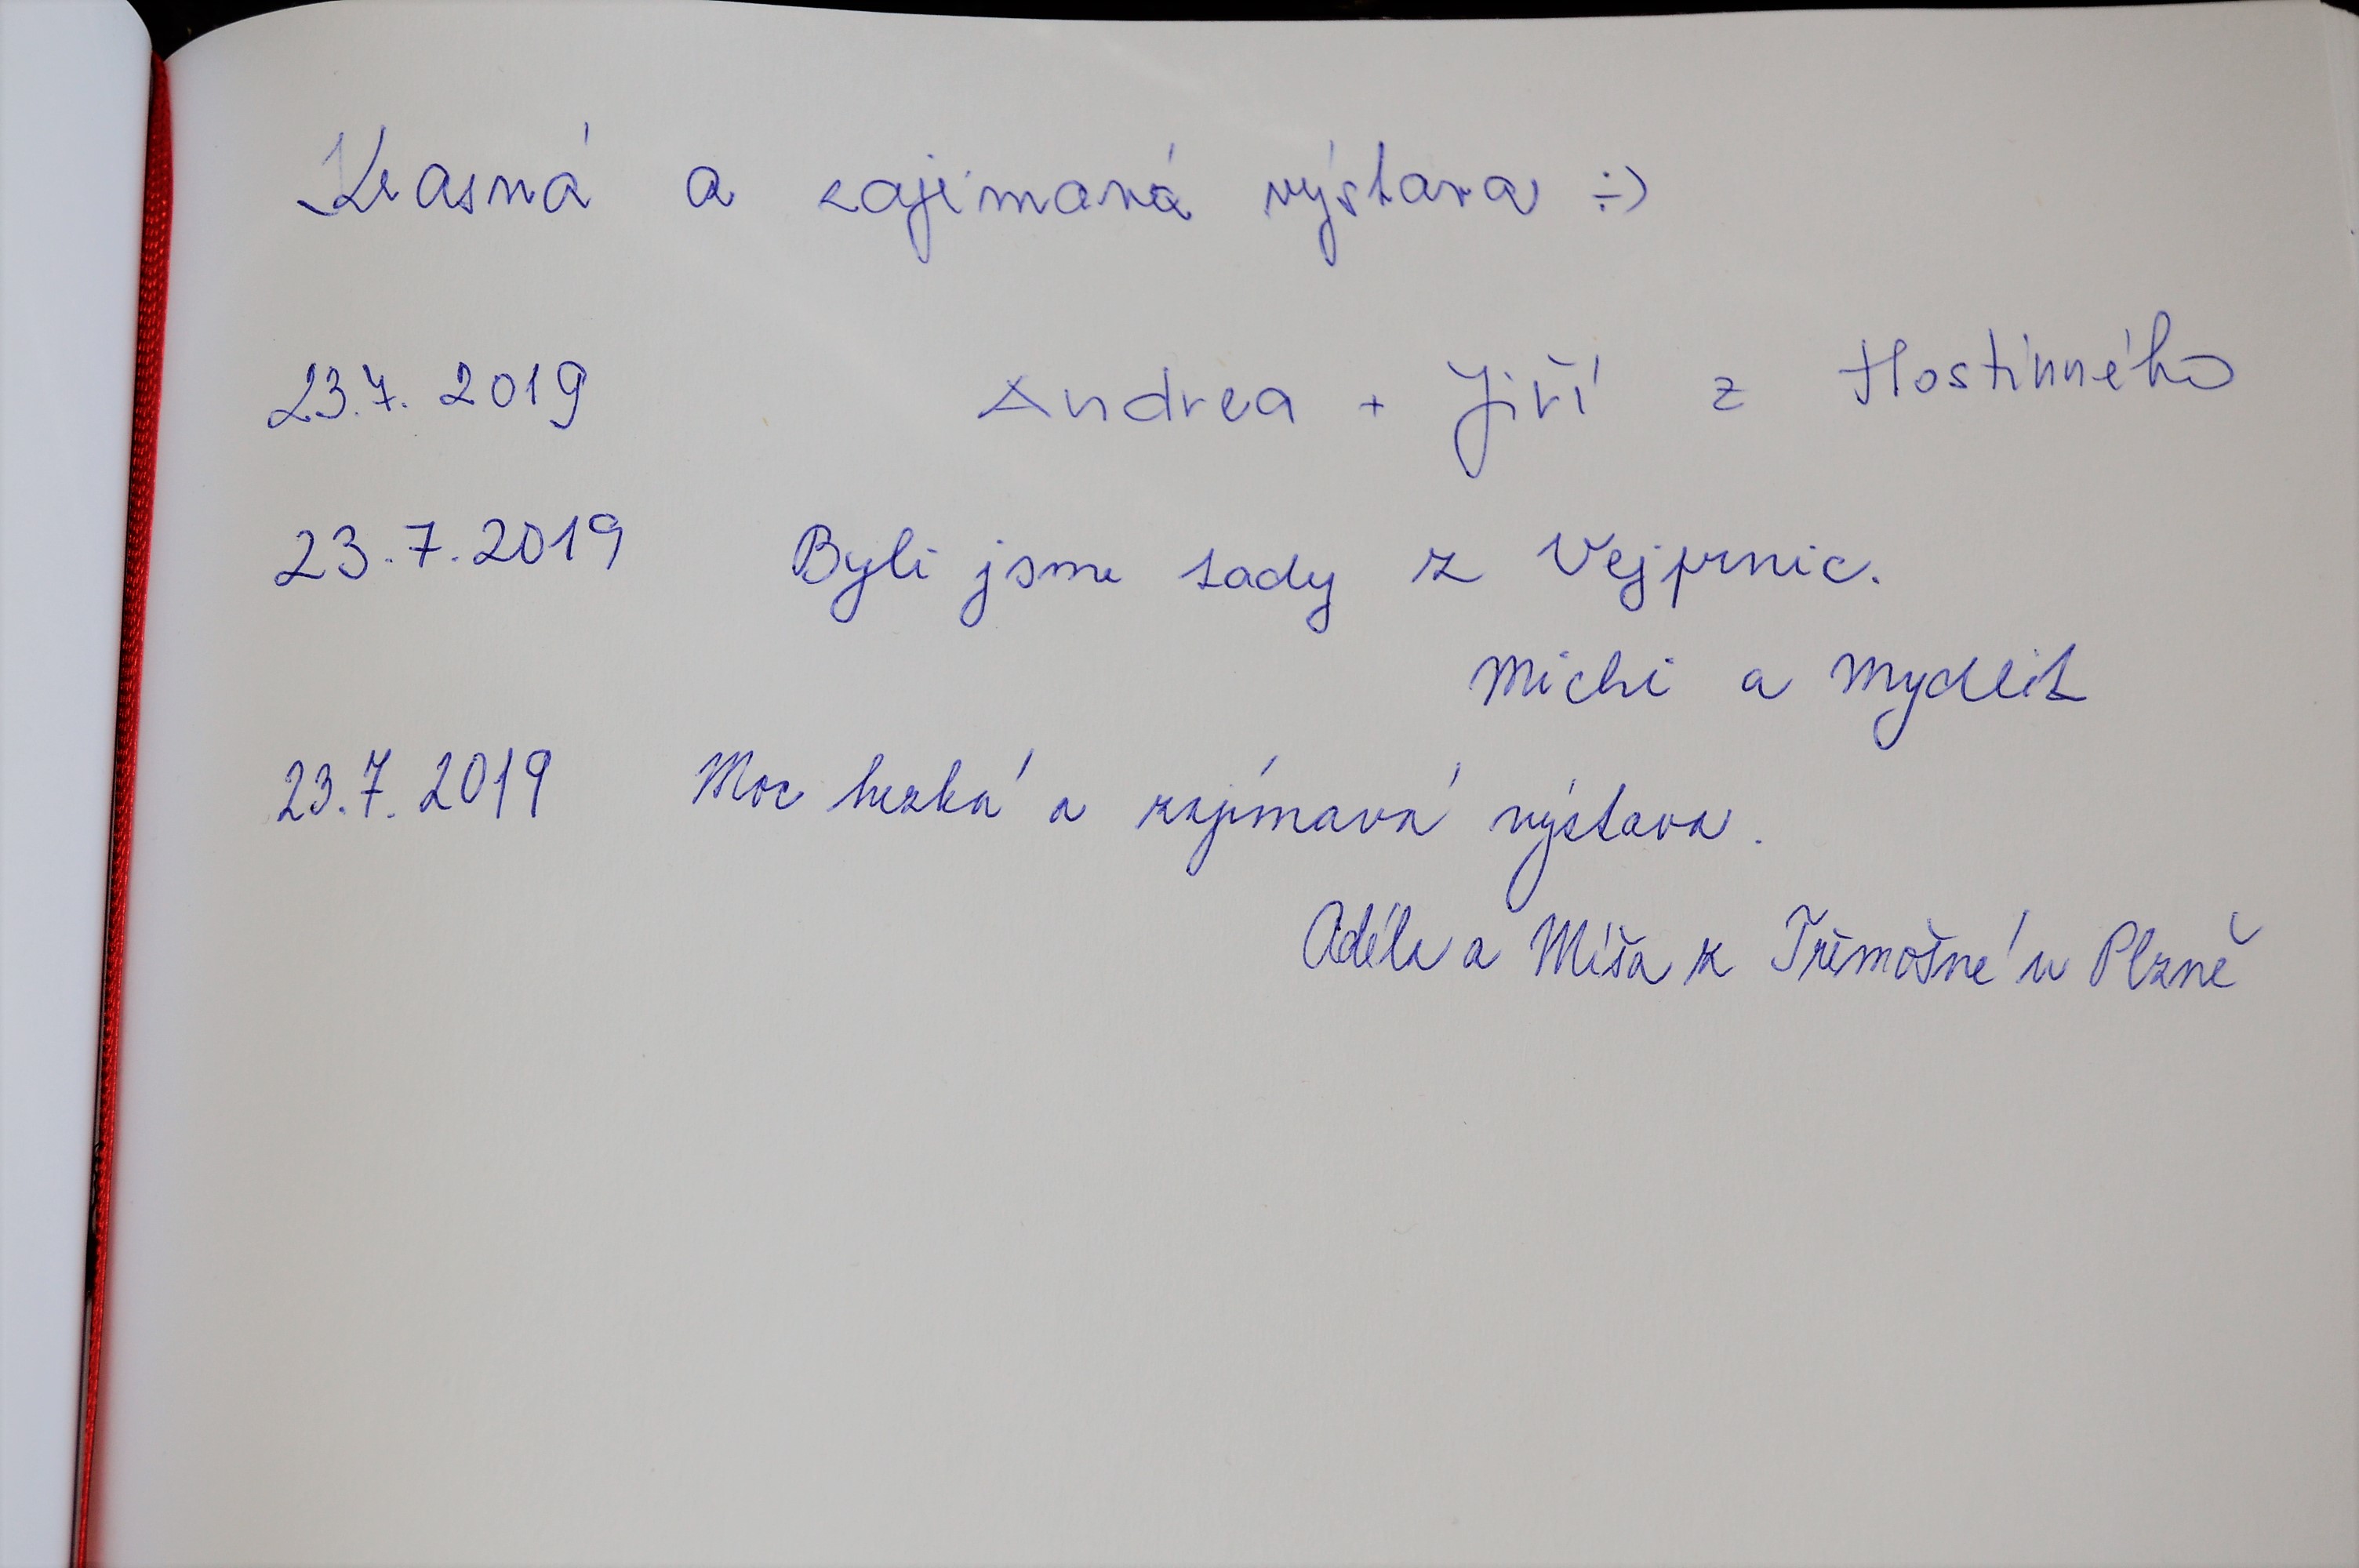 Krasná a zajímavá výstava :-)
23.7. 2019 Andrea + Jiří z Hostinného
23.7.2019 Byli jsme tady z Vejprnic.
Michi a Mydlit
23.7. 2019 Moc hezká a zajímavá výstava.
Adéla a Míša z Třemošné u Plzně